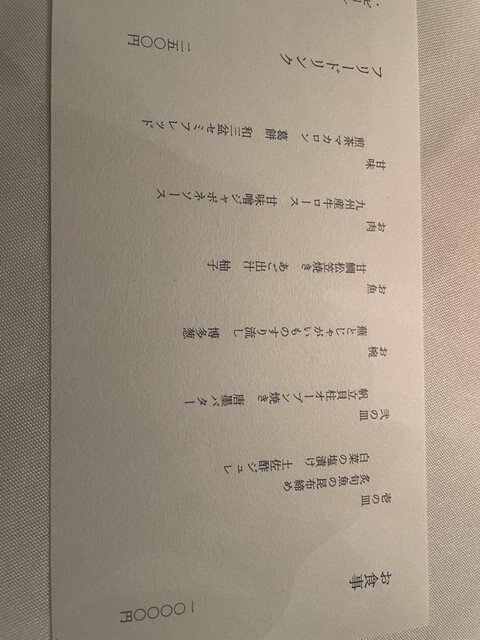 お食事
一〇〇〇〇円
壱の皿
炙旬魚の昆布締め
白菜の塩漬け 土佐酢ジュレ
弐の皿
帆立貝柱オーブン焼き 唐墨バター
お椀
蕪とじゃがいものすり流し 博多葱
お魚
甘鯛松笠焼き あご出汁 柚子
お肉
九州産牛ロース 甘味噌ジャポネソース
甘味
煎茶マカロン 葛餅 和三盆セミフレッド
フリードリンク
二五〇〇円